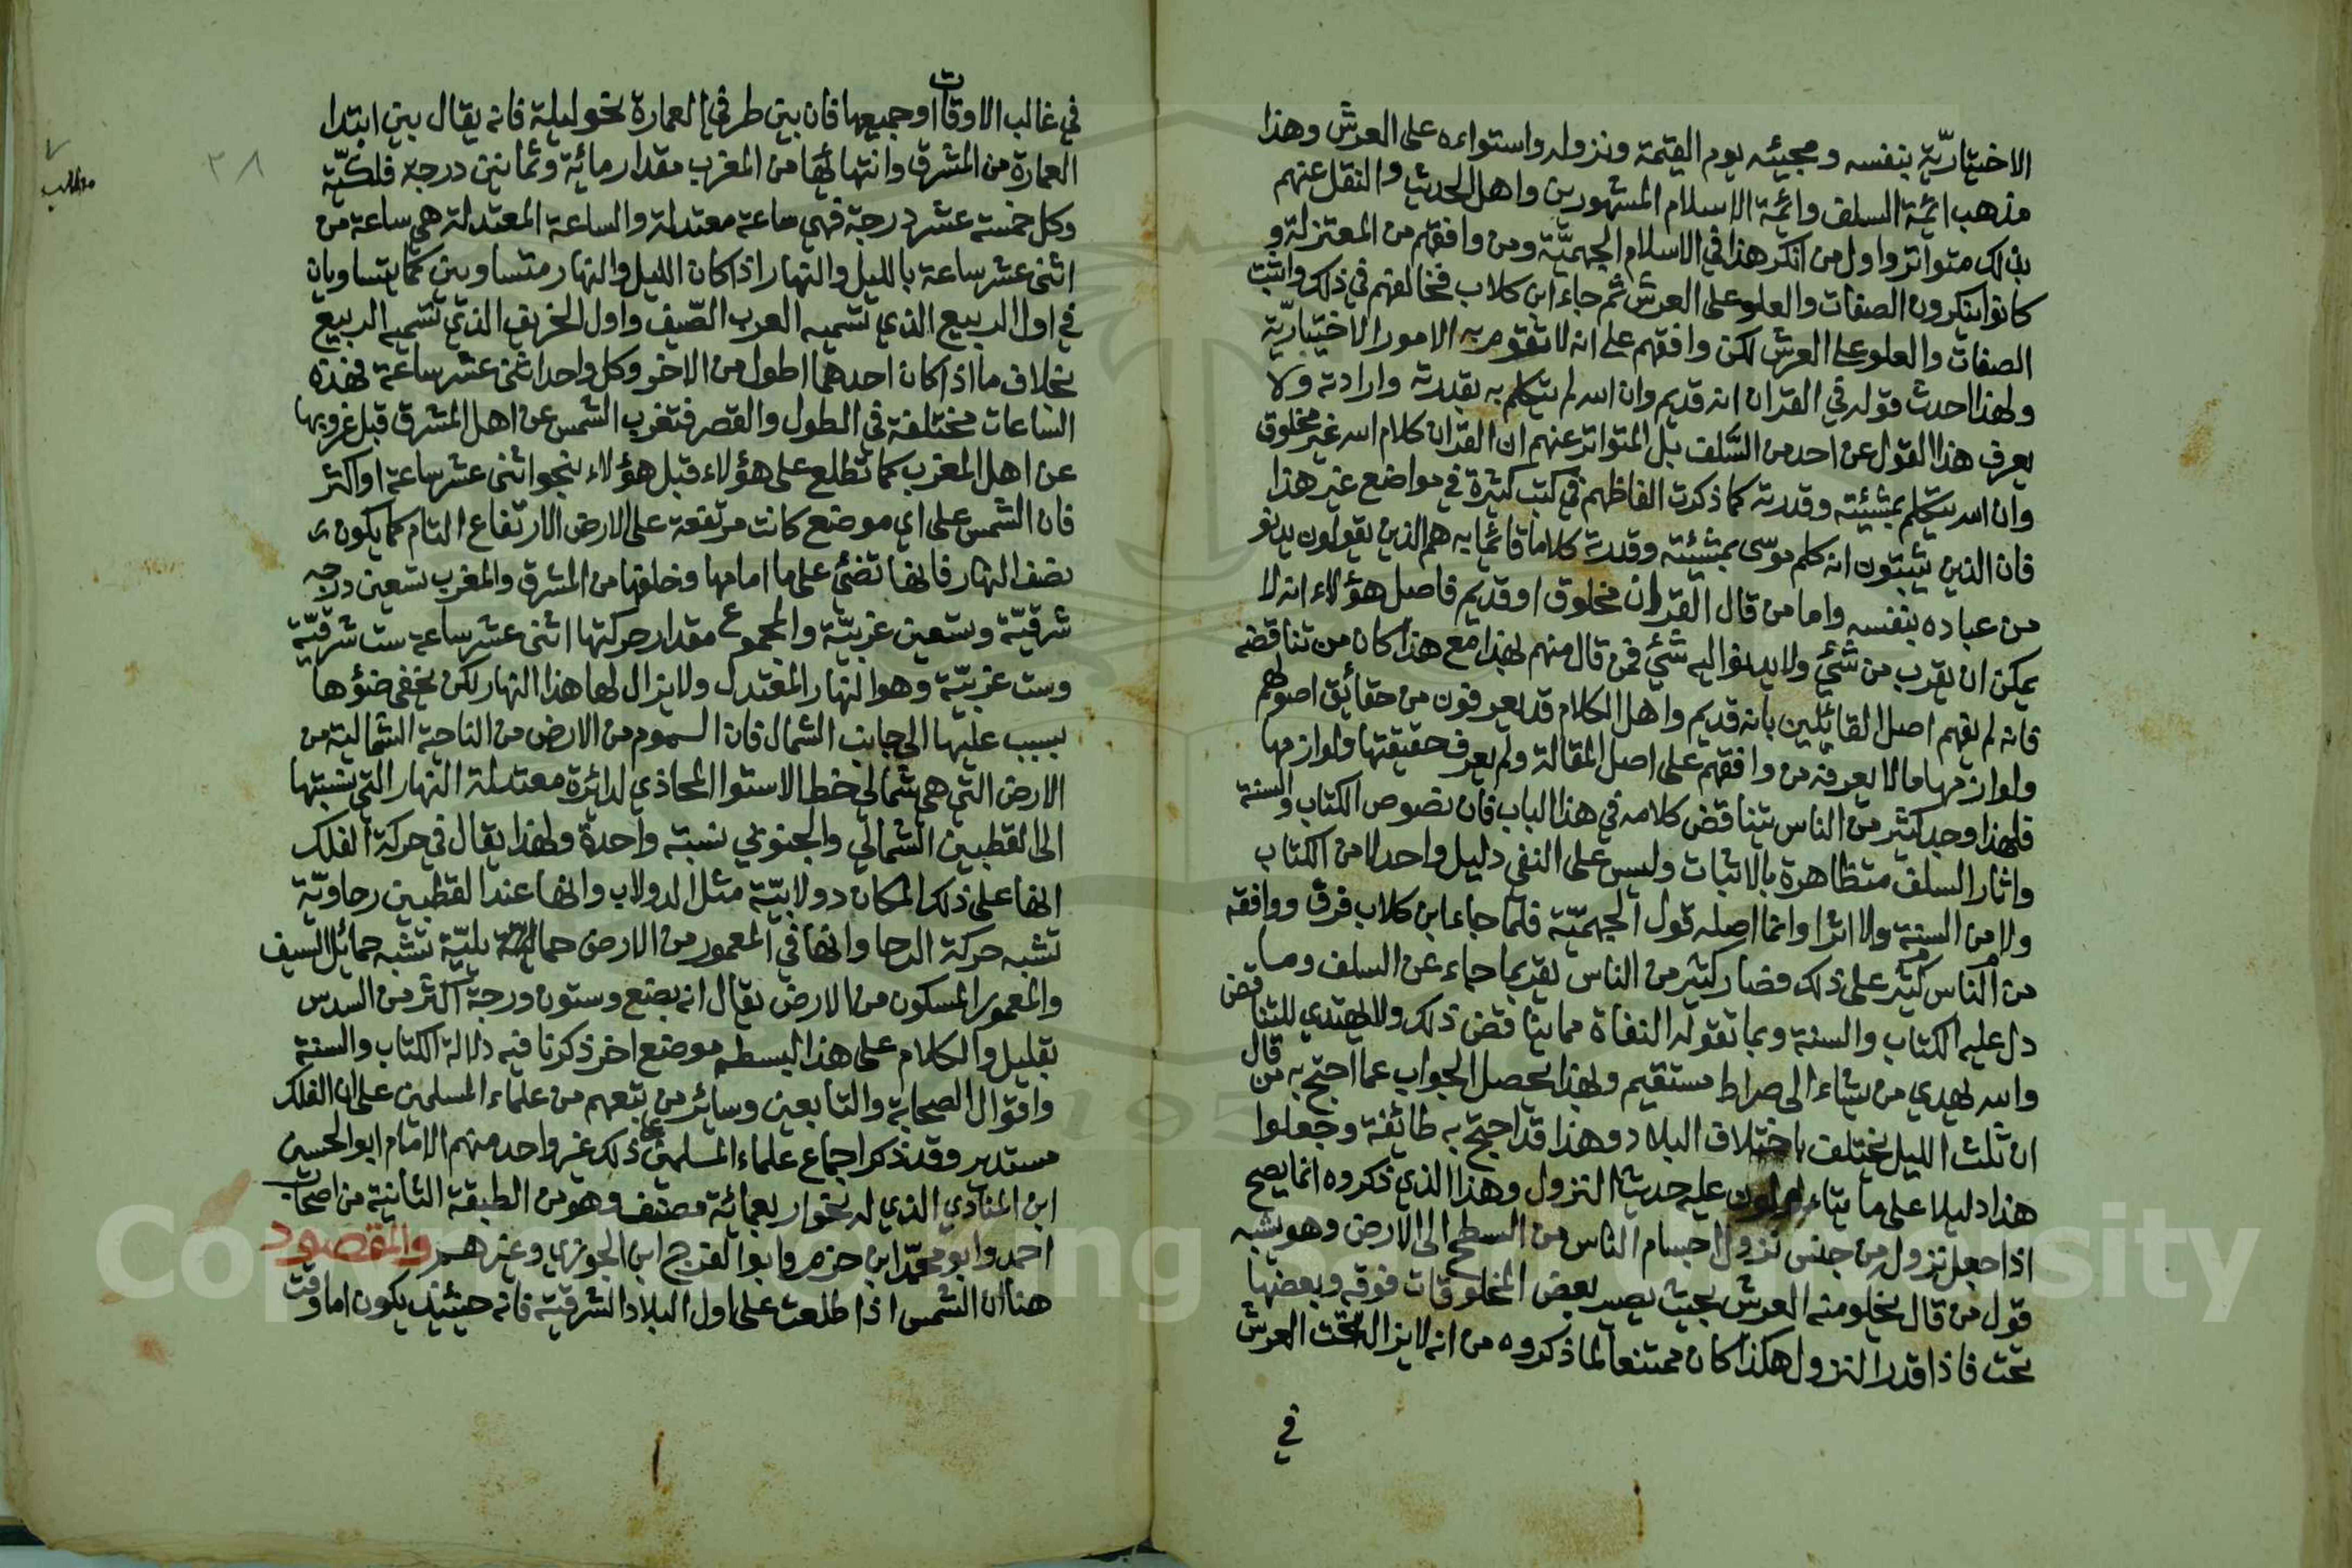 الاختياريّة بنفسه ومجيئه يوم القيمة ونزوله واستواءه على العرش وهذا
مذهب ائمة السلف وائمة الاسلام المشهورين واهل الحديث والنقل عنهم
بذلك متواتر واول من انكر هذا في الاسلام الجهميّة ومن وافقهم من المعتزلة و
كانوا ينكرون الصفات والعلو على العرش ثم جاء ابن كلاب فخالفهم في ذلك واثبت
الصفات والعلو على العرش لكن وافقهم على انه لا تقوم به الامور الاختياريّة
ولهذا احدث قوله في القران انه قديم وان الله لم يتكلم به بقدرته وارادته ولا
يعرف هذا القول عن احد من السّلف بل المتواتر عنهم ان القران كلام الله غير مخلوق
وان الله يتكلم بمشيئته وقدرته كما ذكرت الفاظهم في كتب كثيرة في مواضع غير هذا
فان الذين يثبتون انه كلم موسى بمشيئته وقدرته كلاما قائما به هم الذين يقولون يدنو
من عباده بنفسه واما من قال القران مخلوق او قديم فاصل هؤلاء انه لا
يمكن ان يقرب من شئ ولا يدنو اليه شئ فمن قال منهم بهذا مع هذا كان من تناقضه
فانه لم يفهم اصل القائلين بانه قديم واهل الكلام قد يعرفون من حقائق اصولهم
ولوازمها ما لا يعرفه من وافقهم على اصل المقالة ولم يعرف حقيقتها ولوازمها
فلهذا وجد كثير من الناس يتناقض كلامه في هذا الباب فان نصوص الكتاب والسنة
واثار السلف متظاهرة بالاثبات وليس على النفي دليل واحد لا من الكتاب
ولا من السنة ولا اثرا وانما اصله قول الجهميّة فلما جاء ابن كلاب فرق ووافقه
من الناس كثير على ذلك فصار كثير من الناس يقر بما جاء عن السلف وما
دل عليه الكتاب والسنة وبما تقوله النفاة مما يناقض ذلك ولا يهتدي للتناقض
والله يهدي من يشاء الى صراط مستقيم وبهذا يحصل الجواب عما احتج به من قال
ان ثلث الليل يختلف باختلاف البلاد وهذا قد احتج به طائفة وجعلوا
هذا دليلا على ما يتاءولون عليه حديث النزول وهذا الذي ذكروه انما يصح
اذا جعل نزوله من جنس نزول اجسام الناس من السطح الى الارض وهو يشبه
قول من قال يخلو منه العرش بحيث يصير بعض المخلوقات فوقه وبعضها
تحته فاذا قدر النزول هكذا كان ممتنعا لما ذكروه من انه لا يزال تحت العرش
في
في غالب الاوقات او جميعها فان بين طرفي العمارة نحو ليلة فانه يقال بين ابتدا
العمارة من المشرق وانتهائها من المغرب مقدار مائة وثمانين درجة فلكيّة
وكل خمسة عشر درجة فهي ساعة معتدلة والساعة المعتدلة هي ساعة من
اثنى عشر ساعة بالليل والنهار اذا كان الليل والنهار متساويين كما يتساويان
في اول الربيع الذي تسميه العرب الصّيف واول الخريف الذي تسميه الربيع
بخلاف ما اذا كان احدهما اطول من الاخر وكل واحد اثنى عشر ساعة فهذه
الساعات مختلفة في الطول والقصر فتغرب الشمس عن اهل المشرق قبل غروبها
عن اهل المغرب كما تطلع على هؤلاء قبل هؤلاء بنحو اثنى عشر ساعة او اكثر
فان الشمس على اي موضع كانت مرتفعة على الارض الارتفاع التام كما يكون
نصف النهار فانها تضئ على ما امامها وخلفها من المشرق والمغرب تسعين درجه
شرقيّة وتسعين غربيّة والمجموع مقدار حركتها اثنى عشر ساعة ست شرقيّة
وست غربيّة وهو النهار المعتدل ولا يزال لها هذا النهار لكن يخفى ضؤها
بسبب عليها الى جانب الشمال فان السموم من الارض من الناحية الشمالية من
الارض التي هي شمالي خط الاستوا المحاذي لدائرة معتدلة النهار التي نسبتها
الى القطبين الشمالي والجنوبي نسبة واحدة ولهذا يقال في حركة الفلك
انها على ذلك المكان دولابيّة مثل الدولاب وانها عند القطبين رحاويّة
تشبه حركة الرحا وانها في المعمور من الارض حمائليّة تشبه حمائل السيف
والمعمور المسكون من الارض يقال انه بضع وستون درجة اكثر من السدس
بقليل والكلام على هذا لبسطه موضع اخر ذكرنا فيه دلالة الكتاب والسنة
واقوال الصحابة والتابعين وسائر من يتبعهم من علماء المسلمين على ان الفلك
مستدير وقد ذكر اجماع علماء المسلمين على ذلك غير واحد منهم الامام ابو الحسين
ابن المنادي الذي له نحو اربعمائة مصنف وهو من الطبقة الثانية من اصحاب
احمد وابو محمّد ابن حزم وابو الفرج ابن الجوزي وغيرهم والمقصود
هنا ان الشمس اذا طلعت على اول البلاد الشرقيّة فانه حينئذ يكون اما وقت
٣٨
مطلب
Copyright © King Saud University
195